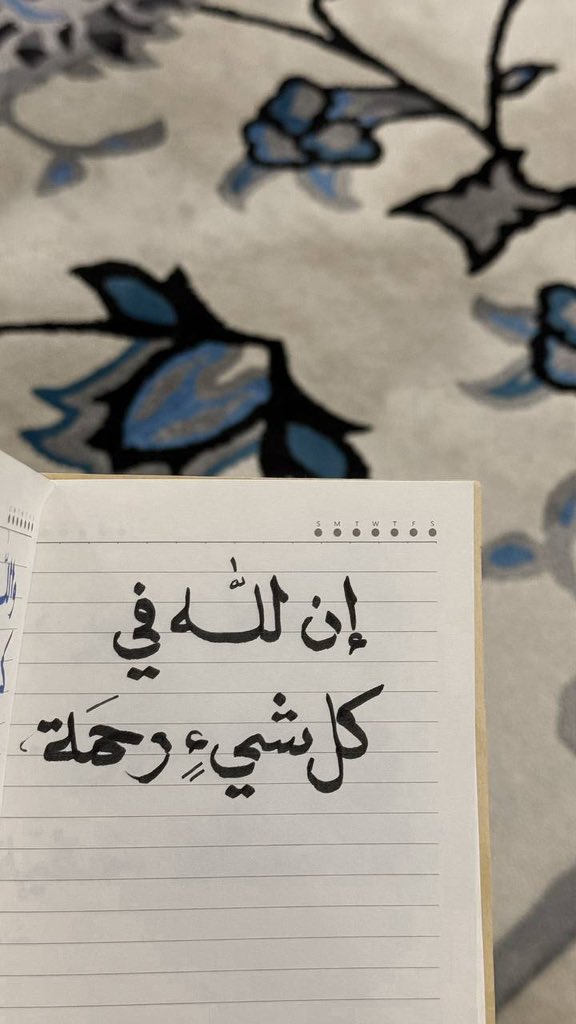 S M T W T F S
إن للّٰه في
كل شيءٍ رحمَة